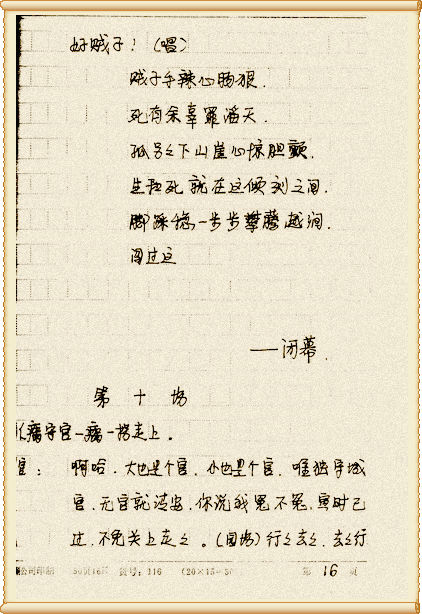 好贼子！（唱）
贼子手辣心肠狠．
死有余辜罪滔天．
孤另々下山崖心惊胆颤．
生和死就在这倾刻之间．
脚踩稳一步步攀藤越涧．
闯过这
——闭幕．
第 十 场
瘸守官一瘸一拐走上。
官：啊哈．大也是个官．小也是个官．唯独守城
官．无官就清安．你说我冤不冤．寅时已
过．不免关上走々。（圆场）行々去々．去々行
公司印制 50页16开 货号：116 (20×15=30 第 16 页